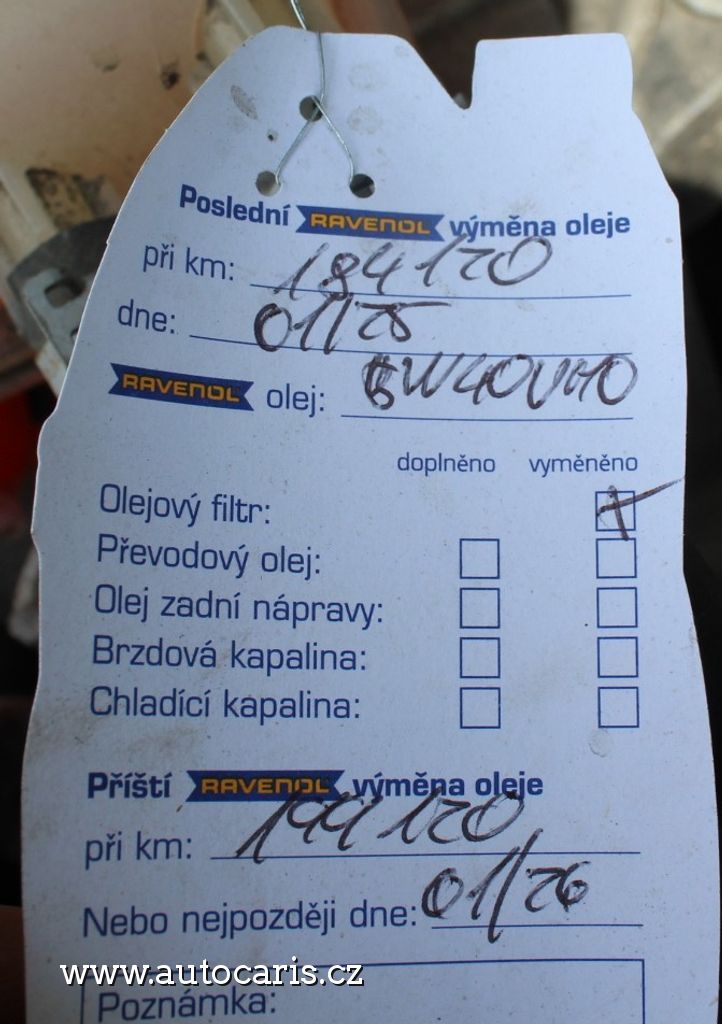 Poslední RAVENOL výměna oleje
při km: 184120
dne: 01/25
RAVENOL olej: 5W40VMO
doplněno vyměněno
Olejový filtr: X
Převodový olej:
Olej zadní nápravy:
Brzdová kapalina:
Chladící kapalina:
Příští RAVENOL výměna oleje
při km: 199120
Nebo nejpozději dne: 01/26
www.autocaris.cz
Poznámka: